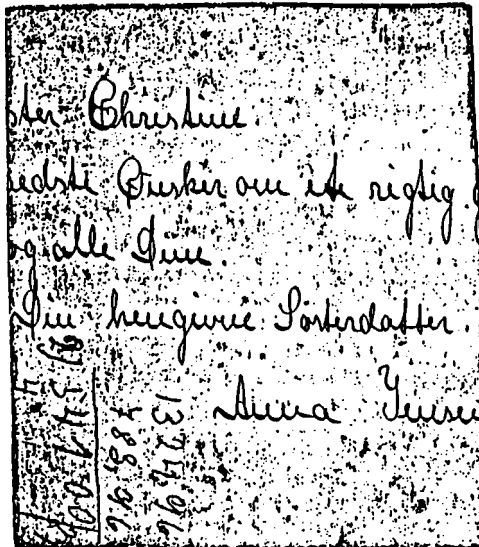 ster Christine.
edste Ønsker om ete rigtig g
og alle Dine.
Din hengivne Sösterdatter.
Anna Jense
13 24 96